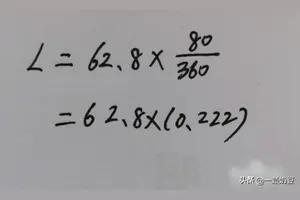 L = 62.8 × 80/360
= 62.8 × (0.222)
头条 @一黑奶豆